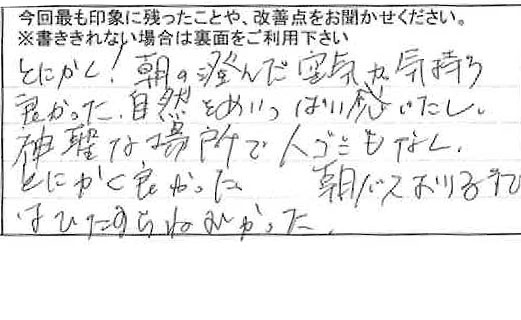 今回最も印象に残ったことや、改善点をお聞かせください。
※書ききれない場合は裏面をご利用下さい
とにかく!朝の澄んだ空気が気持ち
良かった.自然をめいっぱい感じたし、
神聖な場所で人ゴミもなし、
とにかく良かった 朝バスおりるまで
はひたすらねむかった.